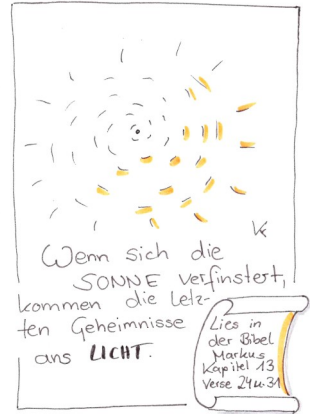 Wenn sich die
SONNE verfinstert,
kommen die letz-
ten Geheimnisse
ans LICHT.
Lies in
der Bibel
Markus
Kapitel 13
Verse 24 u. 31